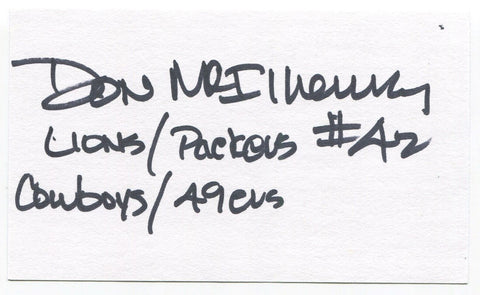 Don McIlhenny
Lions/Packers #42
Cowboys/49ers